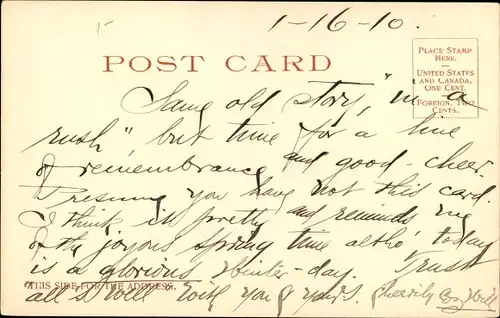 1-16-10.
POST CARD
PLACE STAMP
HERE.
UNITED STATES
AND CANADA,
ONE CENT.
FOREIGN, TWO
CENTS.
Same old story, "in a
rush", but time for a line
of remembrance and good-cheer.
Presume you have not this card.
I think it pretty and reminds me
of the joyous spring time altho' today
is a glorious Winter-day. Trust
THIS SIDE FOR THE ADDRESS.
all's well with you & yours. Cheerily